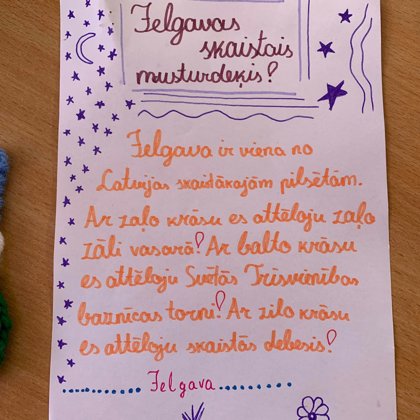 Jelgavas
skaistais
musturdeķis!
Jelgava ir viena no
Latvijas skaistākajām pilsētām.
Ar zaļo krāsu es attēloju zaļo
zāli vasarā! Ar balto krāsu
es attēloju Svētās Trīsvienības
baznīcas torni! Ar zilo krāsu
es attēloju skaistās debesis!
Jelgava